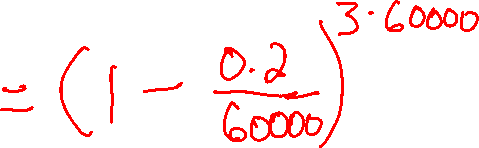 = (1 - 0.2/60000)^3·60000